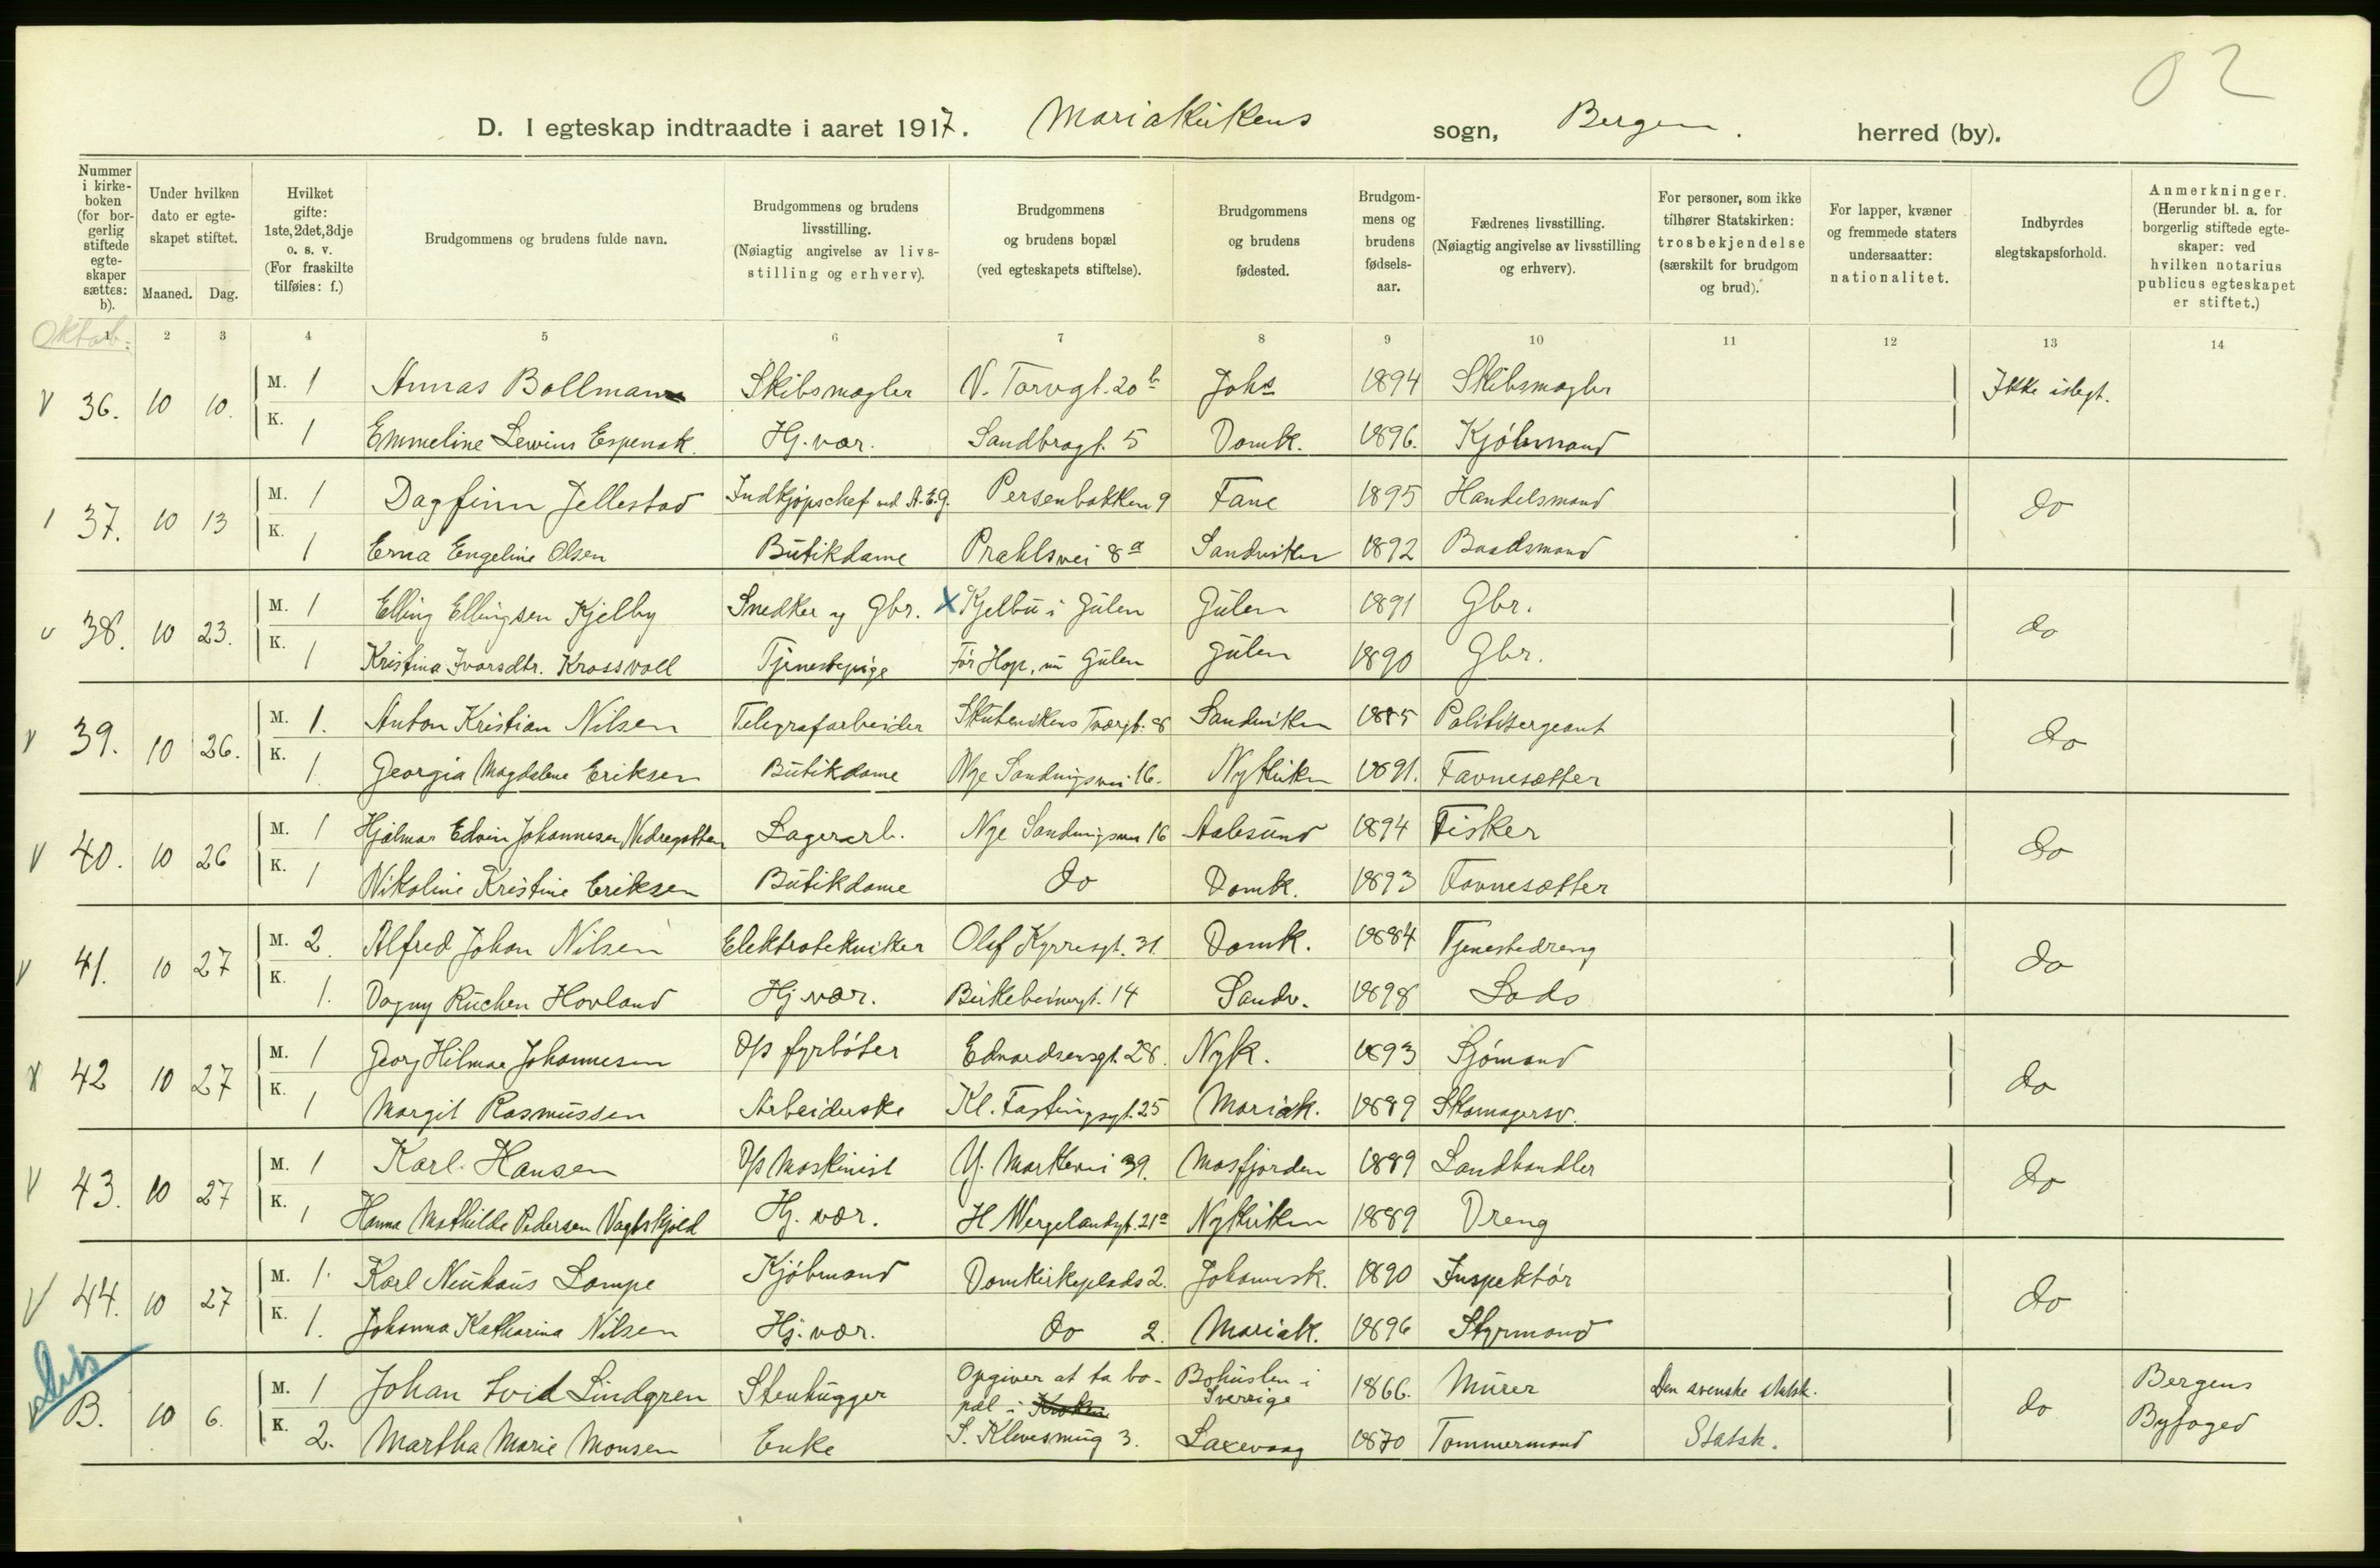 02
D. I egteskap indtraadte i aaret 1917. Mariakirkens sogn, Bergen. herred (by).
Nummer i kirke-boken (for bor-gerlig stiftede egte-skaper sættes: b).
Under hvilken dato er egte-skapet stiftet.
Maaned. Dag.
Hvilket gifte: 1ste, 2det, 3dje o. s. v. (For fraskilte tilføies: f.)
Brudgommens og brudens fulde navn.
Brudgommens og brudens livsstilling. (Nøiagtig angivelse av livs-stilling og erhverv).
Brudgommens og brudens bopæl (ved egteskapets stiftelse).
Brudgommens og brudens fødested.
Brudgom-mens og brudens fødsels-aar.
Fædrenes livsstilling. (Nøiagtig angivelse av livsstilling og erhverv).
For personer, som ikke tilhører Statskirken: trosbekjendelse (særskilt for brudgom og brud).
For lapper, kvæner og fremmede staters undersaatter: nationalitet.
Indbyrdes slegtskapsforhold.
Anmerkninger. (Herunder bl. a. for borgerlig stiftede egte-skaper: ved hvilken notarius publicus egteskapet er stiftet.)
Oktob.
1 2 3 4 5 6 7 8 9 10 11 12 13 14
36. 10 10. M. 1 Annas Bollmann Skibsmægler V. Torvgt. 20 b Johs 1894 Skibsmægler Ikke islegt.
K. 1 Emmeline Lewins Espenak. Hj. vær. Sandbrogt. 5 Domk. 1896. Kjøbmand
37. 10 13 M. 1 Dagfinn Jellestad Indkjøpschef ved A.E.G. Persenbakken 9 Fane 1895 Handelsmand do
K. 1 Erna Engeline Olsen Butikdame Prahlsvei 8a Sandviken 1892 Baadsmand
38. 10 23. M. 1 Elling Ellingsen Kjelby Snedker og Gbr. x Kjelbu i Gulen Gulen 1891 Gbr. do
K. 1 Kristina Ivarsdtr. Krossvoll Tjenestepige Før Hop, nu Gulen Gulen 1890 Gbr.
39. 10 26. M. 1. Anton Kristian Nilsen Telegrafarbeider Skutevikens Tværgt. 8 Sandviken 1885 Politisergeant do
K. 1. Georgia Magdalene Eriksen Butikdame Nye Sandvigsvei 16. Nykirken 1891. Favnesætter
40. 10 26 M. 1 Hjalmar Edvin Johannesen Nedregotten Lagerarb. Nye Sandvigsvei 16 Aalesund 1894 Fisker do
K. 1 Nikoline Kristine Eriksen Butikdame do Domk. 1893 Favnesætter
41. 10 27 M. 2. Alfred Johan Nilsen Elektrotekniker Olaf Kyrresgt. 31 Domk. 1884 Tjenestedreng do
K. 1. Dagny Ruchen Hovland Hj. vær. Birkebeinergt. 14 Sandv. 1898 Lods
42 10 27 M. 1 Georg Hilmar Johannesen D/s fyrbøter Edvardsensgt. 28. Nyk. 1893 Sjømand do
K. 1 Margit Rasmussen Arbeiderske Kl. Fastingsgt. 25 Mariak. 1889 Skomagersv.
43. 10 27 M. 1 Karl Hansen D/s Maskinist Y. Markevei 39. Masfjorden 1889 Landhandler do
K. 1 Hanna Mathilde Pedersen Vagtskjold Hj. vær. H Wergelandsgt. 21a Nykirken 1889 Dreng
44. 10 27 M. 1. Karl Neuhaus Lampe Kjøbmand Domkirkeplads 2. Johannsk. 1890 Inspektør do
K. 1. Johanna Katharina Nilsen Hj. vær. do 2. Mariak. 1896 Styrmand
B. 10 6. M. 1 Johan Lindgren Stenhugger Opgiver at ta bo-pæl i Bohuslen i Sverrige 1866. Murer Den svenske statsk. do Bergens Byfoged
K. 2. Martha Marie Monsen Enke S. Klevesmug 3. Laxevaag 1870 Tømmermand Statsk.